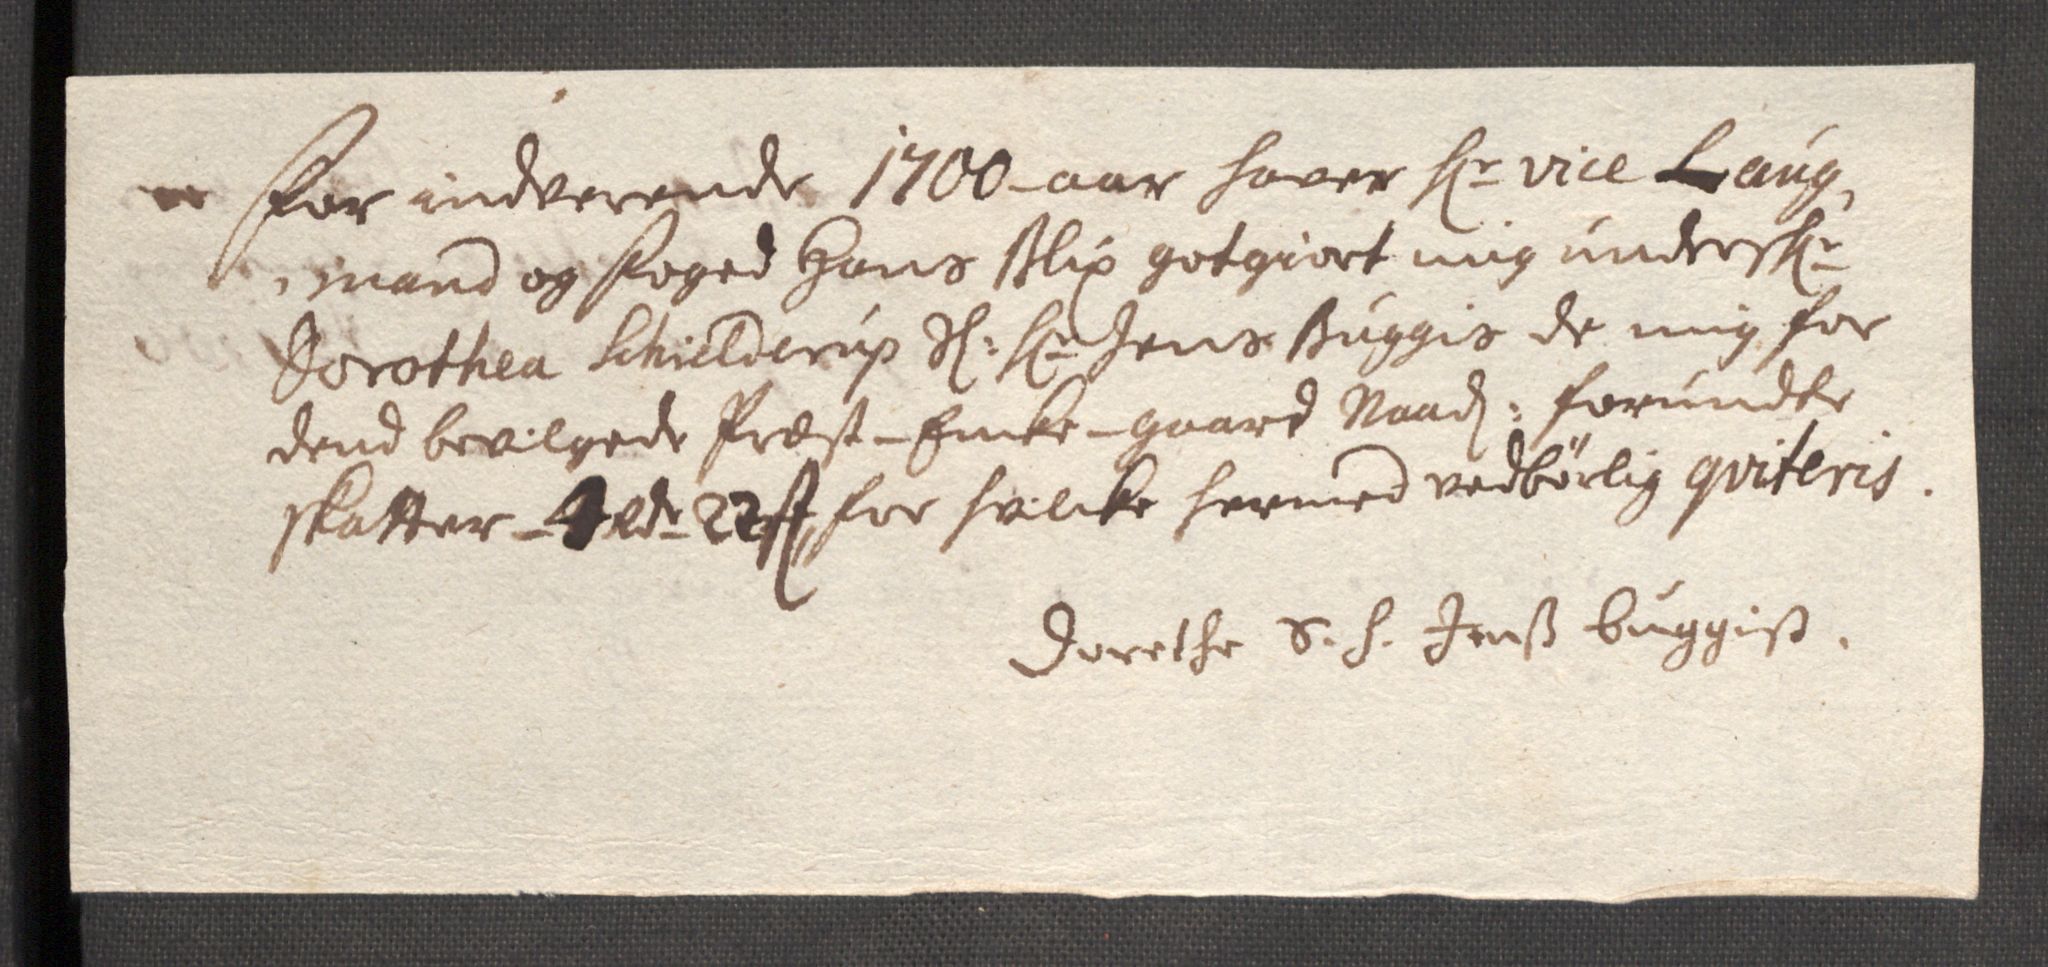 For indverende 1700 aar haver Hr vice Laug,
,mand og Foged Hans Blix gotgiort mig undersk:
Dorothea Schielderup Sl: Hr Jens Buggis de mig for
dend bevilgede Præst-Encke-gaard Naad: forundte
skatter - 4 rdr 22 s, for hvilcke hermed vedbörlig qviteris.
Dorethe S. H. Jenß buggiß.